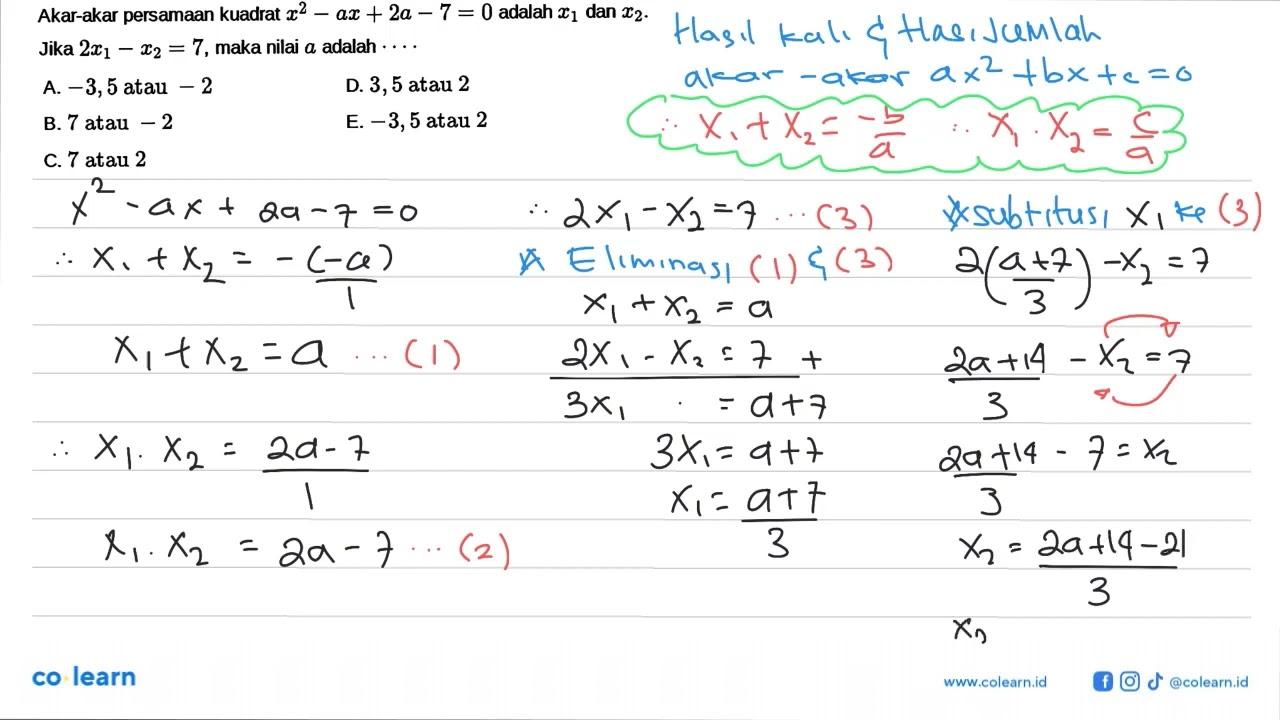 Akar-akar persamaan kuadrat x² − ax + 2a − 7 = 0 adalah x₁ dan x₂.
Jika 2x₁ − x₂ = 7, maka nilai a adalah ····
A. −3, 5 atau − 2
B. 7 atau − 2
C. 7 atau 2
D. 3, 5 atau 2
E. −3, 5 atau 2
Hasil kali & Hasil Jumlah
akar - akar ax² + bx + c = 0
∴ x₁ + x₂ = -b/a ∴ x₁ . x₂ = c/a
x² - ax + 2a - 7 = 0
∴ x₁ + x₂ = -(-a)/1
x₁ + x₂ = a ... (1)
∴ x₁ . x₂ = 2a - 7/1
x₁ . x₂ = 2a - 7 ... (2)
∴ 2x₁ - x₂ = 7 ... (3)
☆ Eliminasi (1) & (3)
x₁ + x₂ = a
2x₁ - x₂ = 7 +
3x₁ . = a + 7
3x₁ = a + 7
x₁ = a + 7/3
☆ subtitusi x₁ ke (3)
2(a + 7/3) - x₂ = 7
2a + 14/3 - x₂ = 7
2a + 14/3 - 7 = x₂
x₂ = 2a + 14 - 21/3
x₂
co·learn
www.colearn.id
@colearn.id